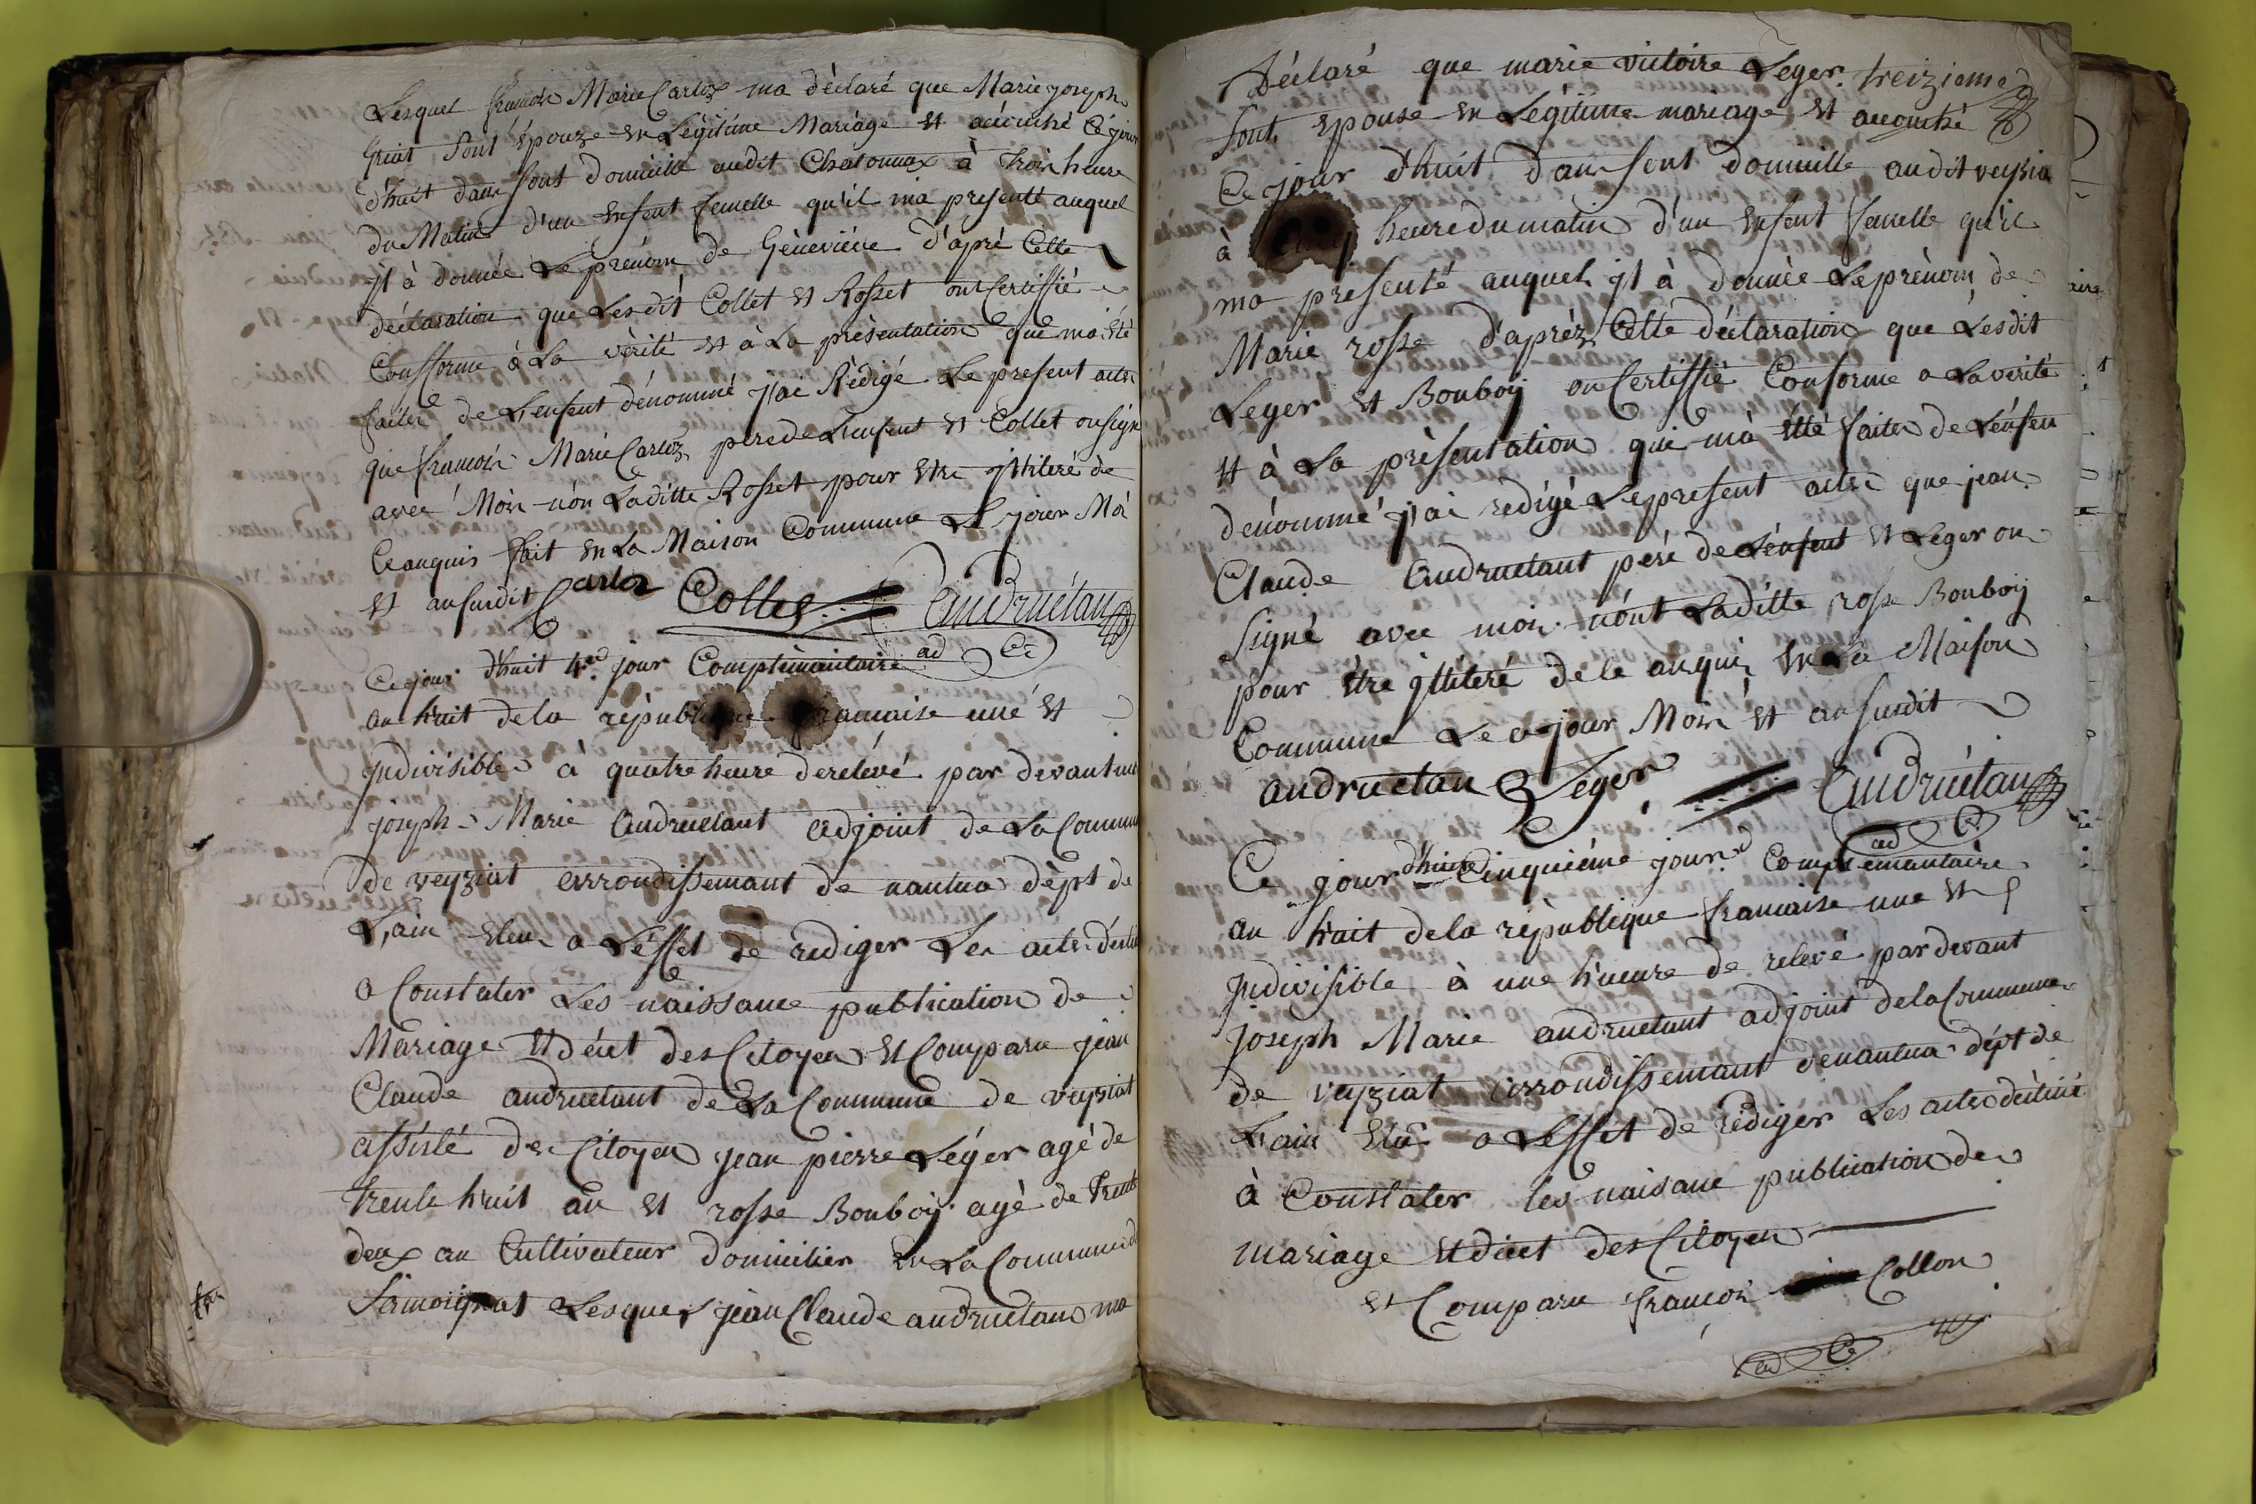 Lesquel francois Marie Carloz ma déclaré que Marie joseph
Gruat sont épouze en Légitime Mariage et acouché Ce jour
d'huit dans sont domicille audit Chatonnax à trois heure
du Matin d'un enfent femelle qu'il ma presenté auquel
jl à donnée Le prénom de Geneviéve d'apré Cette
déclaration que Lesdit Collet et Rosset ont Certiffié
Confforme à La vérité et à La présentation que ma été
faites de L'enfent dénommé j'ai Rédigé Le present acte
que francois Marie Carloz pere de L'enfent et Collet on signé
avec Moi non Laditte Rosset pour etre jlliteré de
Ceanquis fait en La Maison Commune Le jour Moi
et an susdit Carloz Collet Andruétan
ad Ce
Ce jour d'huit 4.e jour Complémentaire
an huit de la république francaise une et
jndivisible à quatre heure de relévé par devant moi
joseph Marie Andruetant Adjoint de La Commune
de veyziat arrondissemant de nantua dépt de
L'ain eleu a L'effet de rediger Les acte déstiné
a Constater Les naissance publication de
Mariage et décet des Citoyen et Comparu jean
Claude andruetant de La Commune de veyziat
assisté des Citoyen jean pierre Léger agé de
trente huit an et rosse Bouboy agé de trente
deux an Cultivateur domicilier en La Commune de
Samoignat Lesquel jean Claude andruetant ma
Déclaré que marie victoire Léger treizieme
sont épouse en Légitime mariage et acouché
Ce jour d'huit dans sont domicille audit veyziat
à heure du matin d'un enfent femelle qu'il
ma presenté auquel jl à donnée Le prénom de
Marie rosse d'aprés Cette déclaration que Lesdit
Leger et Bouboy on Certiffié Conforme a La vérité
et à La présentation qui ma été faites de L'énfen
dénommé j'ai rédigé Le present acte que jean
Claude Andruetant peré de L'énfent et Leger on
signé avec moi nont Laditte rosse Bouboy
pour étre jlliteré de le anquis en La Maison
Commune Le jour Mois et an susdit
andruetan Léger Andruétan
ad Ce
Ce jour d'huit Cinquiéme jour Complemantaire
an huit de la république francaise une et
jndivisible à une heure de relevé par devant
joseph Marie andruetant adjoint de la Commune
de veyziat arrondissemant de nantua dépt de
L'ain eleu a L'effet de rédiger Les acte déstiné
à Constater les naisance publication de
mariage et décet des Citoyen
et Comparu francois Collon
ad Ce